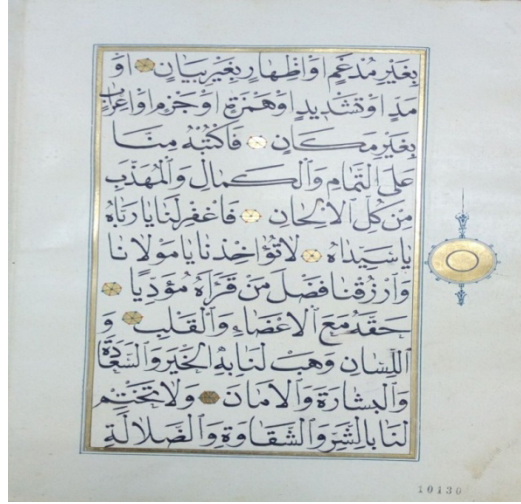 بِغَيْرِ مُدْغَمٍ اَوْ اِظْهَارٍ بِغَيْرِ بَيَانٍ اَوْ
مَدٍّ اَوْ تَشْدِيدٍ اَوْ هَمْزَةٍ اَوْ جَزْمٍ اَوْ اِعْرَابٍ
بِغَيْرِ مَكَانٍ فَاكْتُبْهُ مِنَّا
عَلَى التَّمَامِ وَالْكَمَالِ وَالْمُهَذَّبِ
مِنْ كُلِّ الْاَلْحَانِ فَاغْفِرْ لَنَا يَا رَبَّاهُ
يَا سَيِّدَاهُ لَا تُؤَاخِذْنَا يَا مَوْلَانَا
وَارْزُقْنَا فَضْلَ مَنْ قَرَاَهُ مُؤَدِّيًا
حَقَّهُ مَعَ الْاَعْضَاءِ وَالْقَلْبِ وَ
اللِّسَانِ وَهَبْ لَنَا بِهِ الْخَيْرَ وَالسَّعَادَةَ
وَالْبِشَارَةَ وَالْاَمَانَ وَلَا تَخْتِمْ
لَنَا بِالشَّرِّ وَالشَّقَاوَةِ وَالضَّلَالَةِ
10130